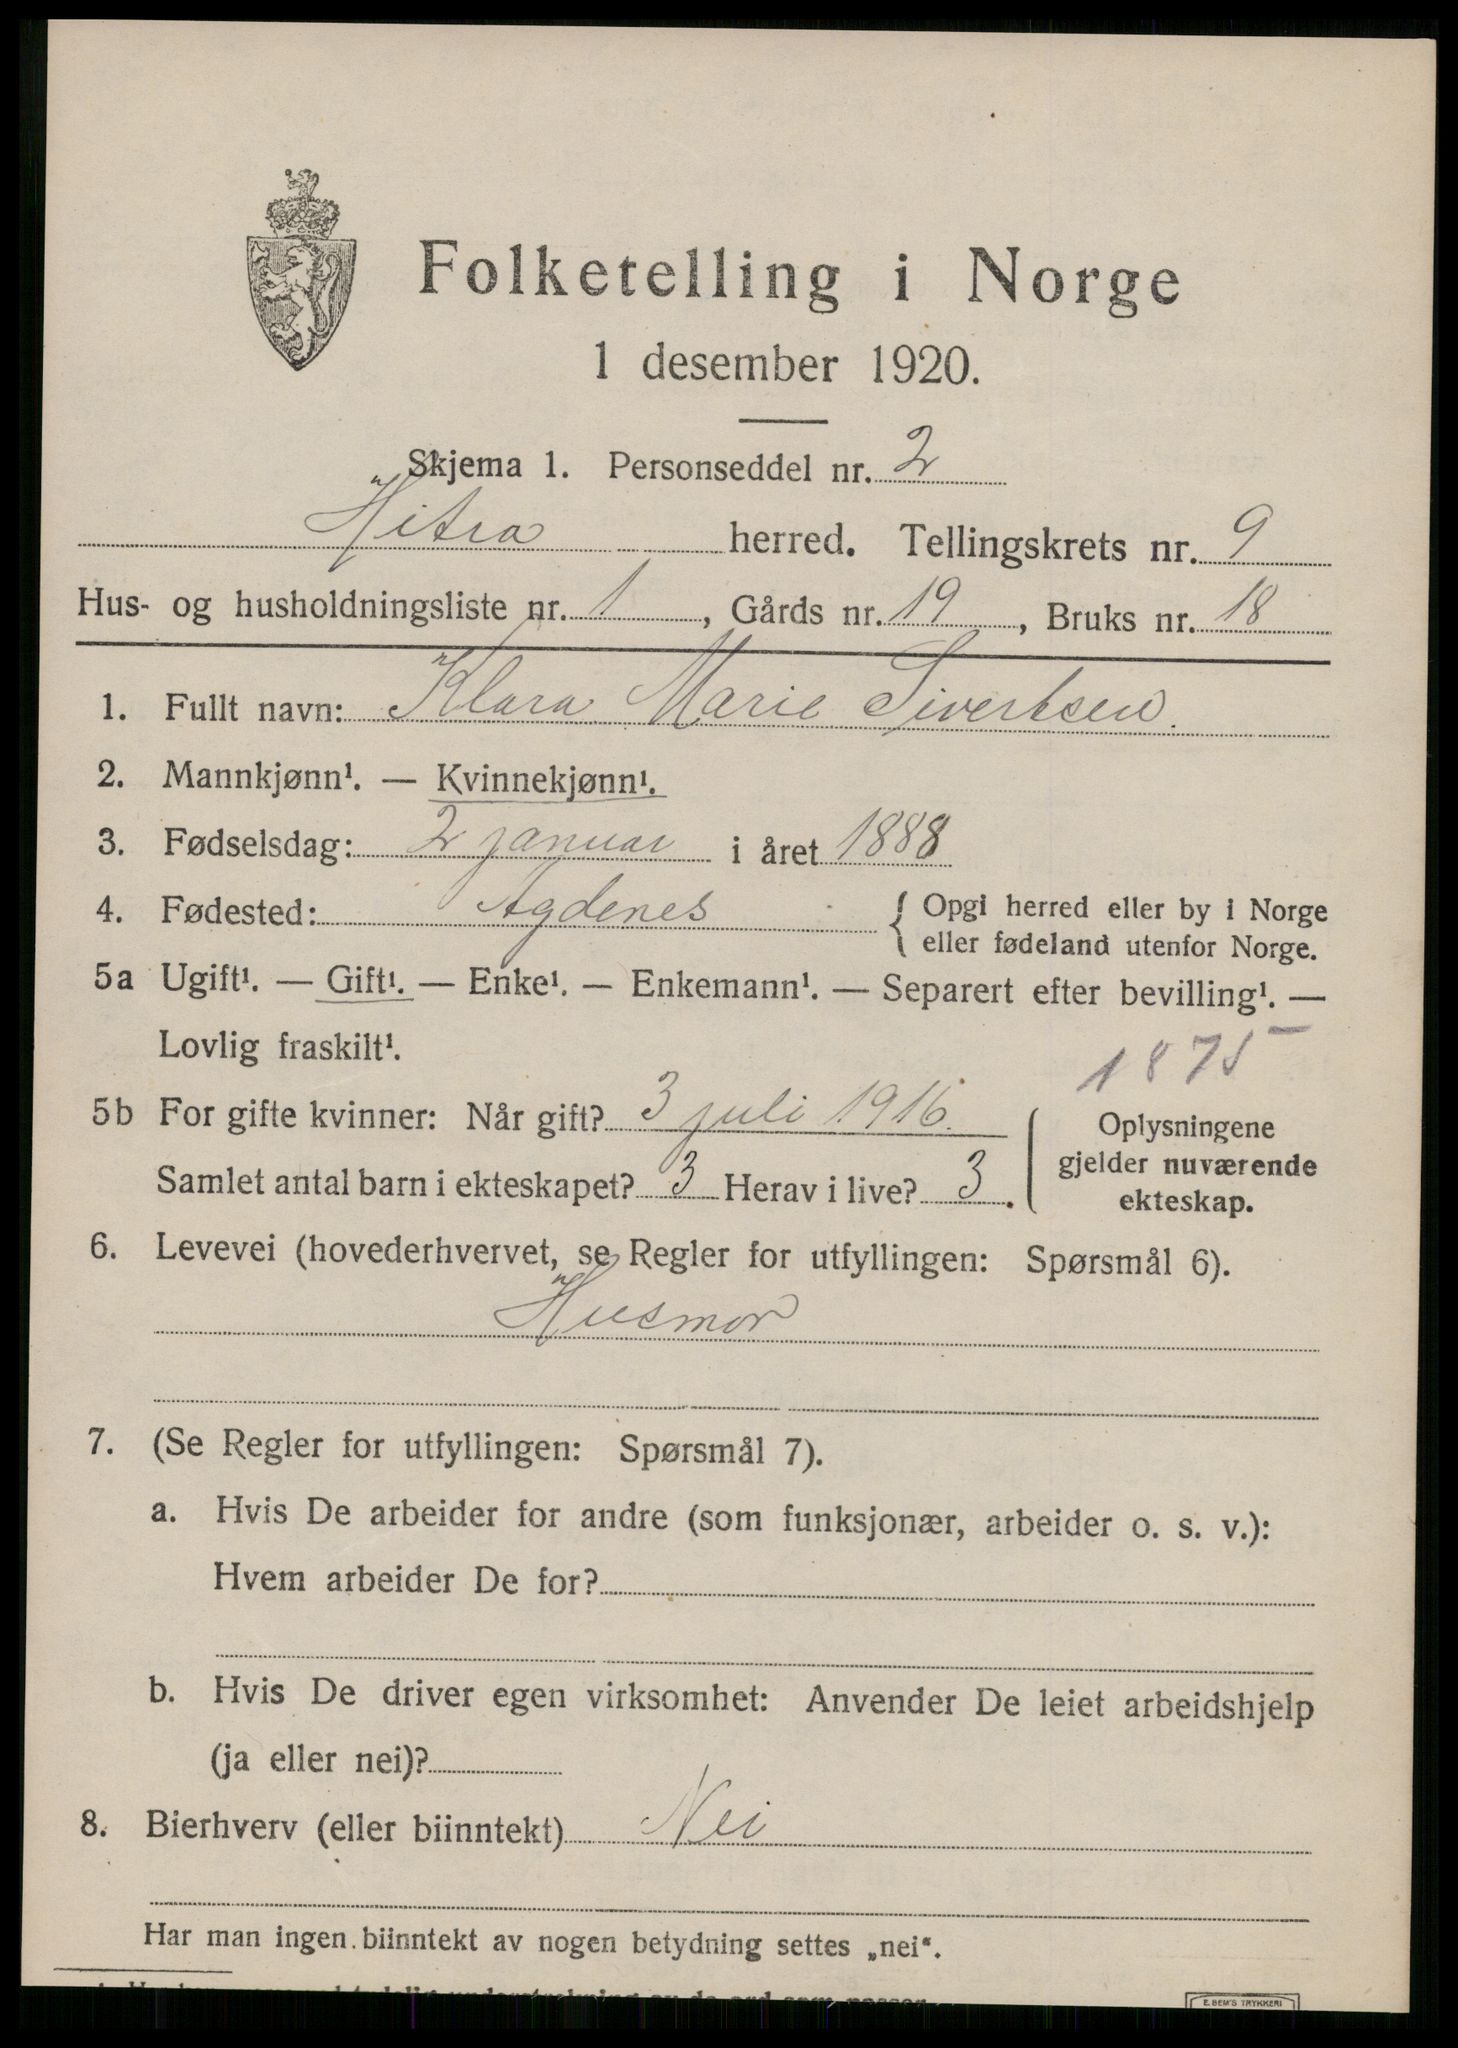 Folketelling i Norge
1 desember 1920.
Skjema 1. Personseddel nr. 2
Hitra herred. Tellingskrets nr. 9
Hus- og husholdningsliste nr. 1, Gårds nr. 19, Bruks nr. 18
1. Fullt navn: Klara Marie Sivertsen
2. Mannkjønn¹. — Kvinnekjønn¹.
3. Fødselsdag: 2 januar i året 1888
4. Fødested: Agdenes { Opgi herred eller by i Norge
eller fødeland utenfor Norge.
5a Ugift¹. — Gift¹. — Enke¹. — Enkemann¹. — Separert efter bevilling¹. —
Lovlig fraskilt¹.
1875
5b For gifte kvinner: Når gift? 3 juli 1916.
Samlet antal barn i ekteskapet? 3 Herav i live? 3.
Oplysningene
gjelder nuværende
ekteskap.
6. Levevei (hovederhvervet, se Regler for utfyllingen: Spørsmål 6).
Husmor
7. (Se Regler for utfyllingen: Spørsmål 7).
a. Hvis De arbeider for andre (som funksjonær, arbeider o. s. v.):
Hvem arbeider De for?
b. Hvis De driver egen virksomhet: Anvender De leiet arbeidshjelp
(ja eller nei)?
8. Bierhverv (eller biinntekt) Nei
Har man ingen biinntekt av nogen betydning settes „nei“.
E. BEM'S TRYKKERI